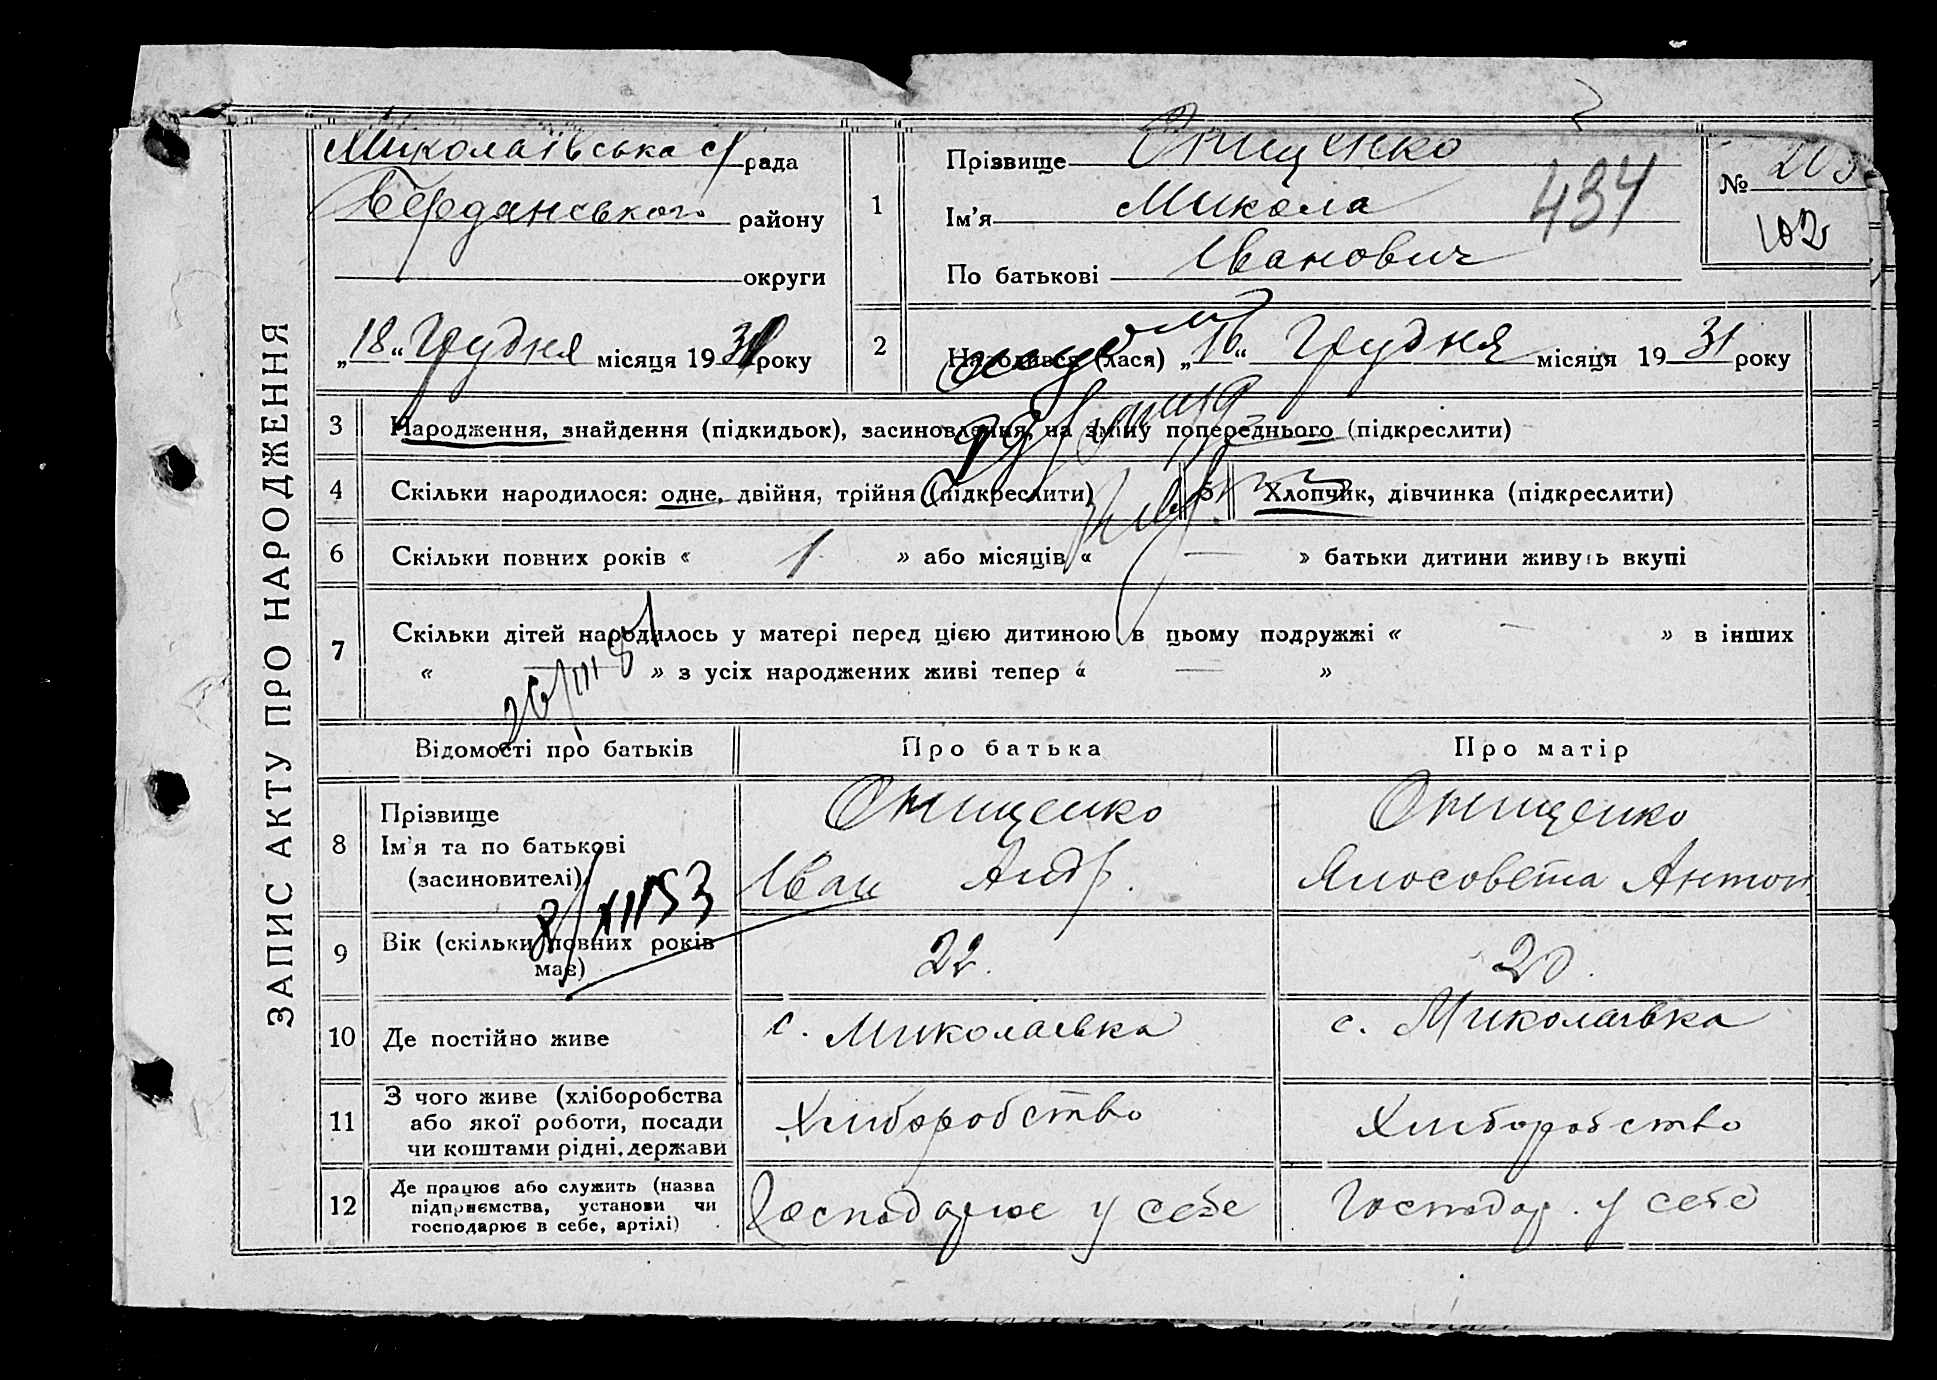 ЗАПИС АКТУ ПРО НАРОДЖЕННЯ
Миколаївська с/рада
Бердянського району
округи
„18“ Грудня місяця 1931 року
1
Прізвище Онищенко
Ім'я Микола
По батькові Іванович
434
№ 203
102
2
Народився (лася) „16“ Грудня місяця 1931 року
3 Народження, знайдення (підкидьок), засиновлення, на зміну попереднього (підкреслити)
4 Скільки народилося: одне, двійня, трійня (підкреслити) 5 Хлопчик, дівчинка (підкреслити)
6 Скільки повних років « 1 » або місяців « — » батьки дитини живуть вкупі
7 Скільки дітей народилось у матері перед цією дитиною в цьому подружжі « — » в інших
« — » з усіх народжених живі тепер « — »
Відомості про батьків Про батька Про матір
8 Прізвище
Ім'я та по батькові
(засиновителі)
Онищенко
Иван Андр.
Онищенко
Ялосовета Антон
8/XII 53
9 Вік (скільки повних років має) 22. 20.
10 Де постійно живе с. Миколаєвка с. Миколаївка
11 З чого живе (хліборобства
або якої роботи, посади
чи коштами рідні, держави
Хлиборобство Хлиборобство
12 Де працює або служить (назва
підприємства, установи чи
господарює в себе, артілі)
Господарює у себе Господар. у себе